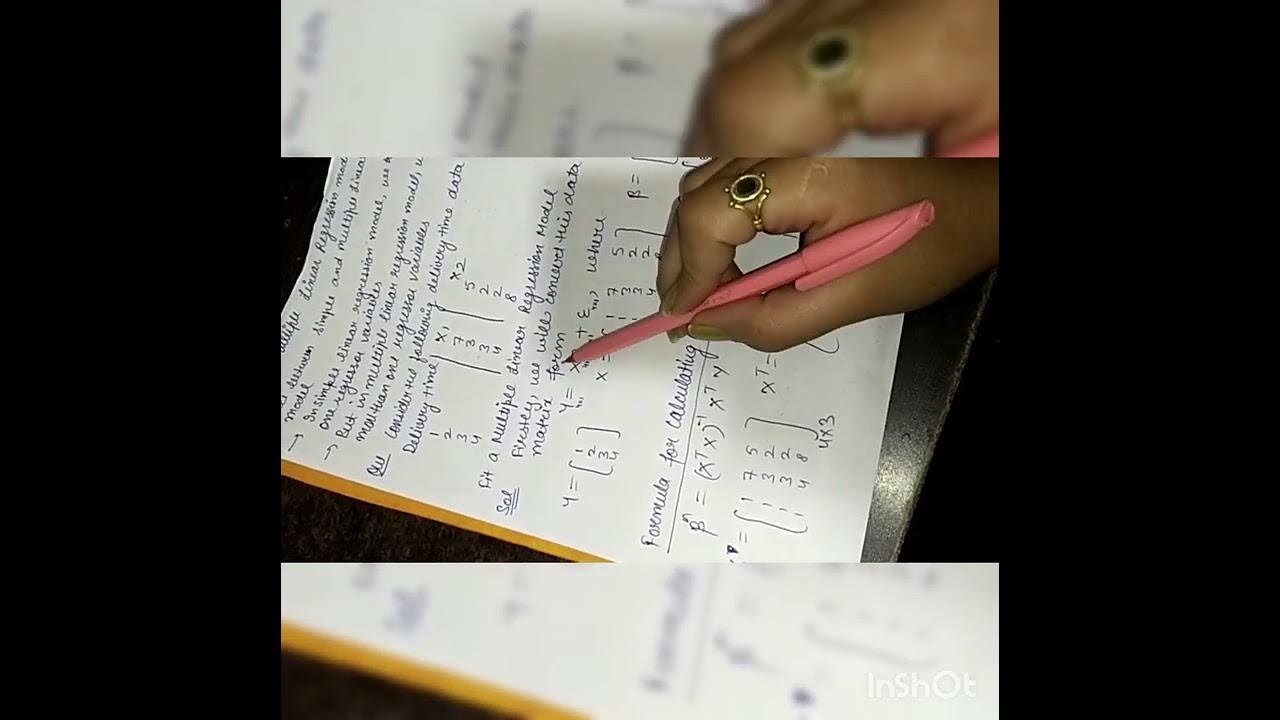 ultiple linear Regression mod
between simple and multiple linea
model
→ In simple linear regression model, we
one regressor variables
→ But in multiple linear regression model, u
more than one regressor variables
Qu Consider the following delivery time data
Delivery time x1 x2
1 7 5
2 3 2
3 3 2
4 4 8
Fit a Multiple linear Regression Model
Sol Firstly, we will convert this data
matrix form
Y = X + ε, where
Y = [1 2 3 4] X = 1 7 5 β =
1 3 2
3 2
4
Formula for calculating
β^ = (X^T X)^-1 X^T Y
= [1 7 5 X^T =
1 3 2
1 3 2
1 4 8] 4x3
InShOt